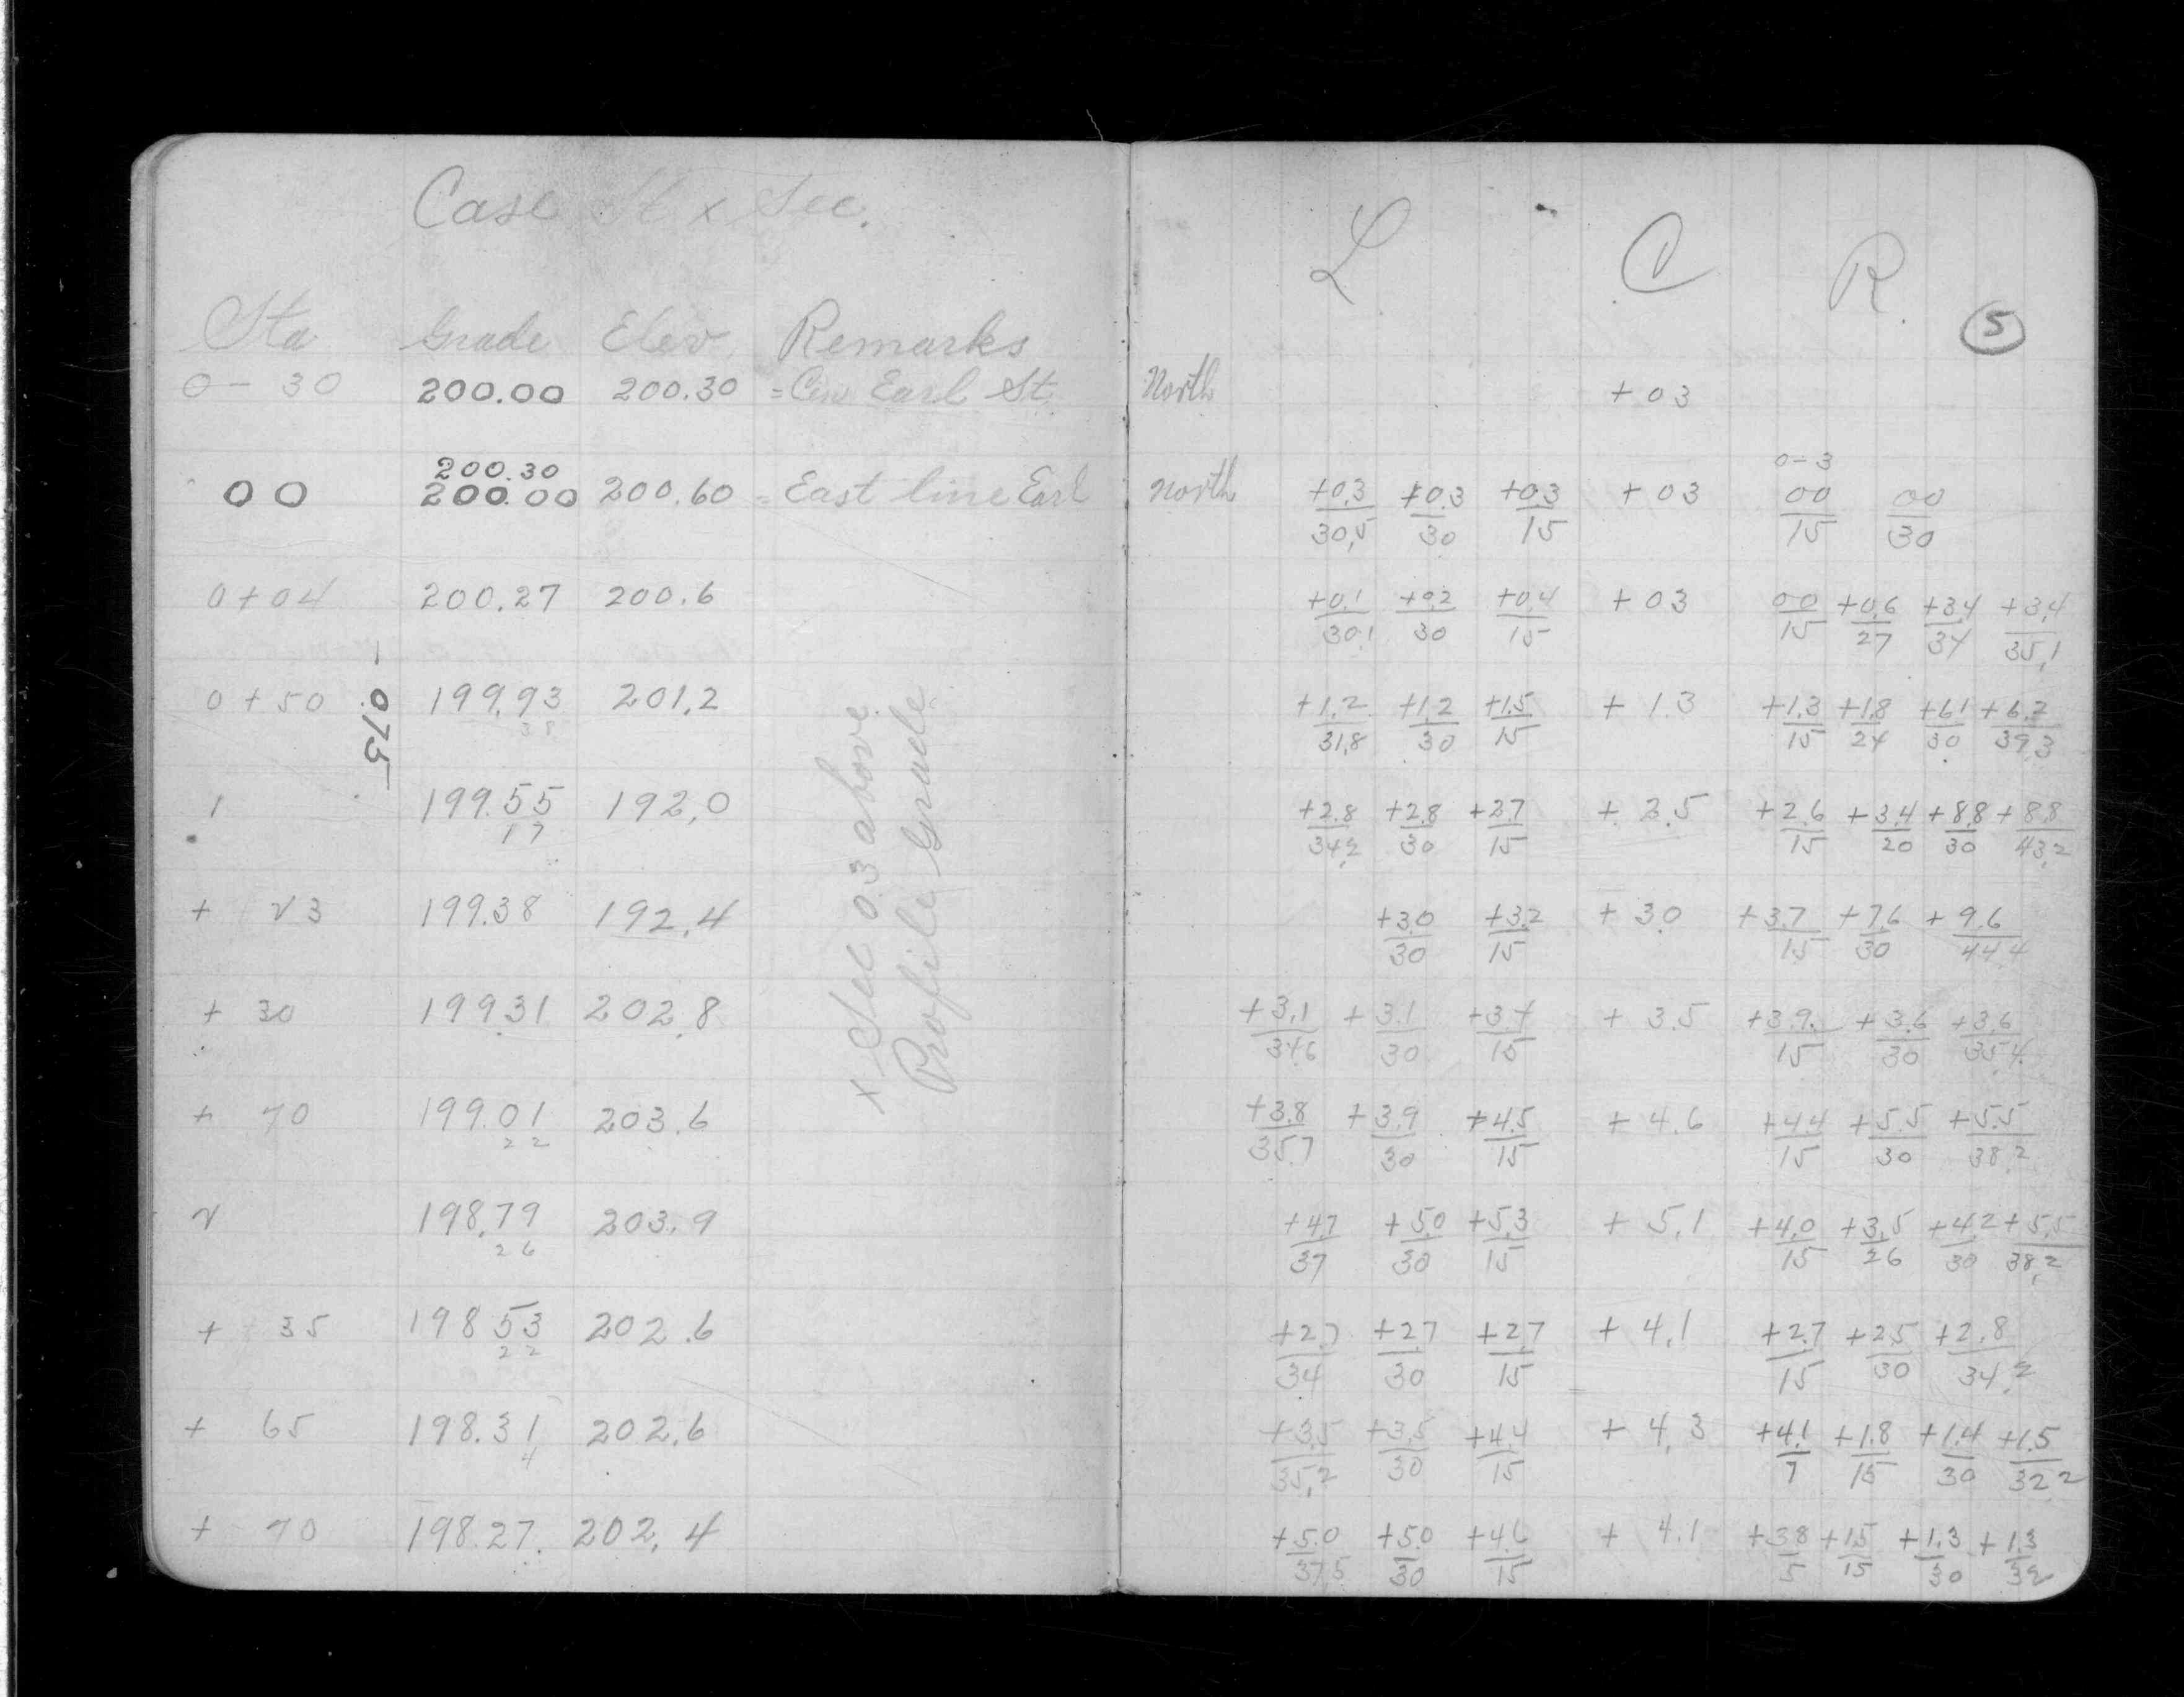 Case St x Sec.
Sta Grade Elev. Remarks
0 - 30 200.00 200.30 = Cen Earl St.
200.30
00 200.00 200.60 = East line Earl
0+04 200.27 200.6
0+50 199.93 201.2
38
- .075
1 199.55 192.0
17
+ 23 199.38 192.4
+ 30 199.31 202.8
+ 70 199.01 203.6
22
2 198.79 203.9
26
+ 35 198.53 202.6
22
+ 65 198.31 202.6
4
+ 70 198.27. 202.4
x Sec 0.3 above
Profile Grade
L C R
5
North +03
0-3
North +0.3 +0.3 +0.3 +03 00 00
30.5 30 15 15 30
+0.1 +0.2 +0.4 +03 00 +0.6 +3.4 +3.4
30.1 30 15 15 27 34 35.1
+1.2 +1.2 +1.5 +1.3 +1.3 +1.8 +6.1 +6.2
31.8 30 15 15 24 30 39.3
+2.8 +2.8 +2.7 +2.5 +2.6 +3.4 +8.8 +8.8
34.2 30 15 15 20 30 43.2
+3.0 +3.2 +3.0 +3.7 +7.6 +9.6
30 15 15 30 44.4
+3.1 +3.1 +3.4 +3.5 +3.9 +3.6 +3.6
34.6 30 15 15 30 35.4
+3.8 +3.9 +4.5 +4.6 +4.4 +5.5 +5.5
35.7 30 15 15 30 38.2
+4.7 +5.0 +5.3 +5.1 +4.0 +3.5 +4.2 +5.5
37 30 15 15 26 30 38.2
+2.7 +2.7 +2.7 +4.1 +2.7 +2.5 +2.8
34 30 15 15 30 34.2
+3.5 +3.5 +4.4 +4.3 +4.1 +1.8 +1.4 +1.5
35.2 30 15 7 15 30 32.2
+5.0 +5.0 +4.6 +4.1 +3.8 +1.5 +1.3 +1.3
37.5 30 15 5 15 30 32